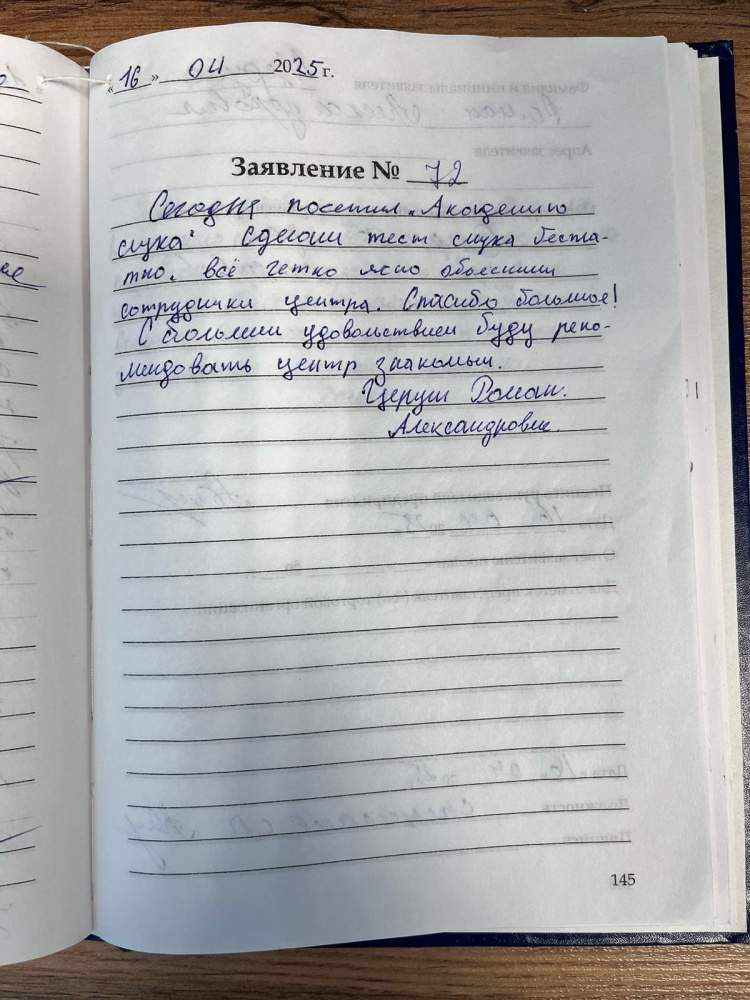 «16» 04 2025 г.
Заявление № 72
Сегодня посетил „Академию
слуха“ Сделали тест слуха беспла-
тно, всё четко ясно объяснили
сотрудники центра. Спасибо большое!
С большим удовольствием буду реко-
мендовать центр знакомым.
Роман
Александрович.
145